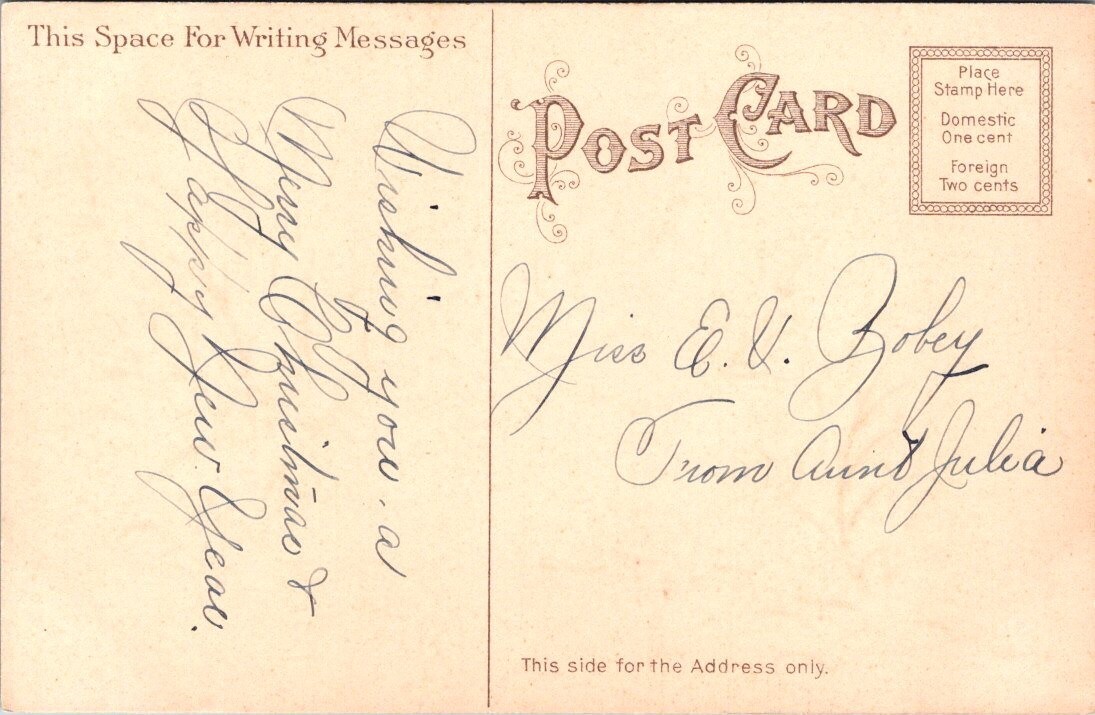 This Space For Writing Messages
Wishing you a
Merry Christmas &
Happy New Year.
POST CARD
Place
Stamp Here
Domestic
One cent
Foreign
Two cents
Miss E. V. Bobey
From Aunt Julia
This side for the Address only.